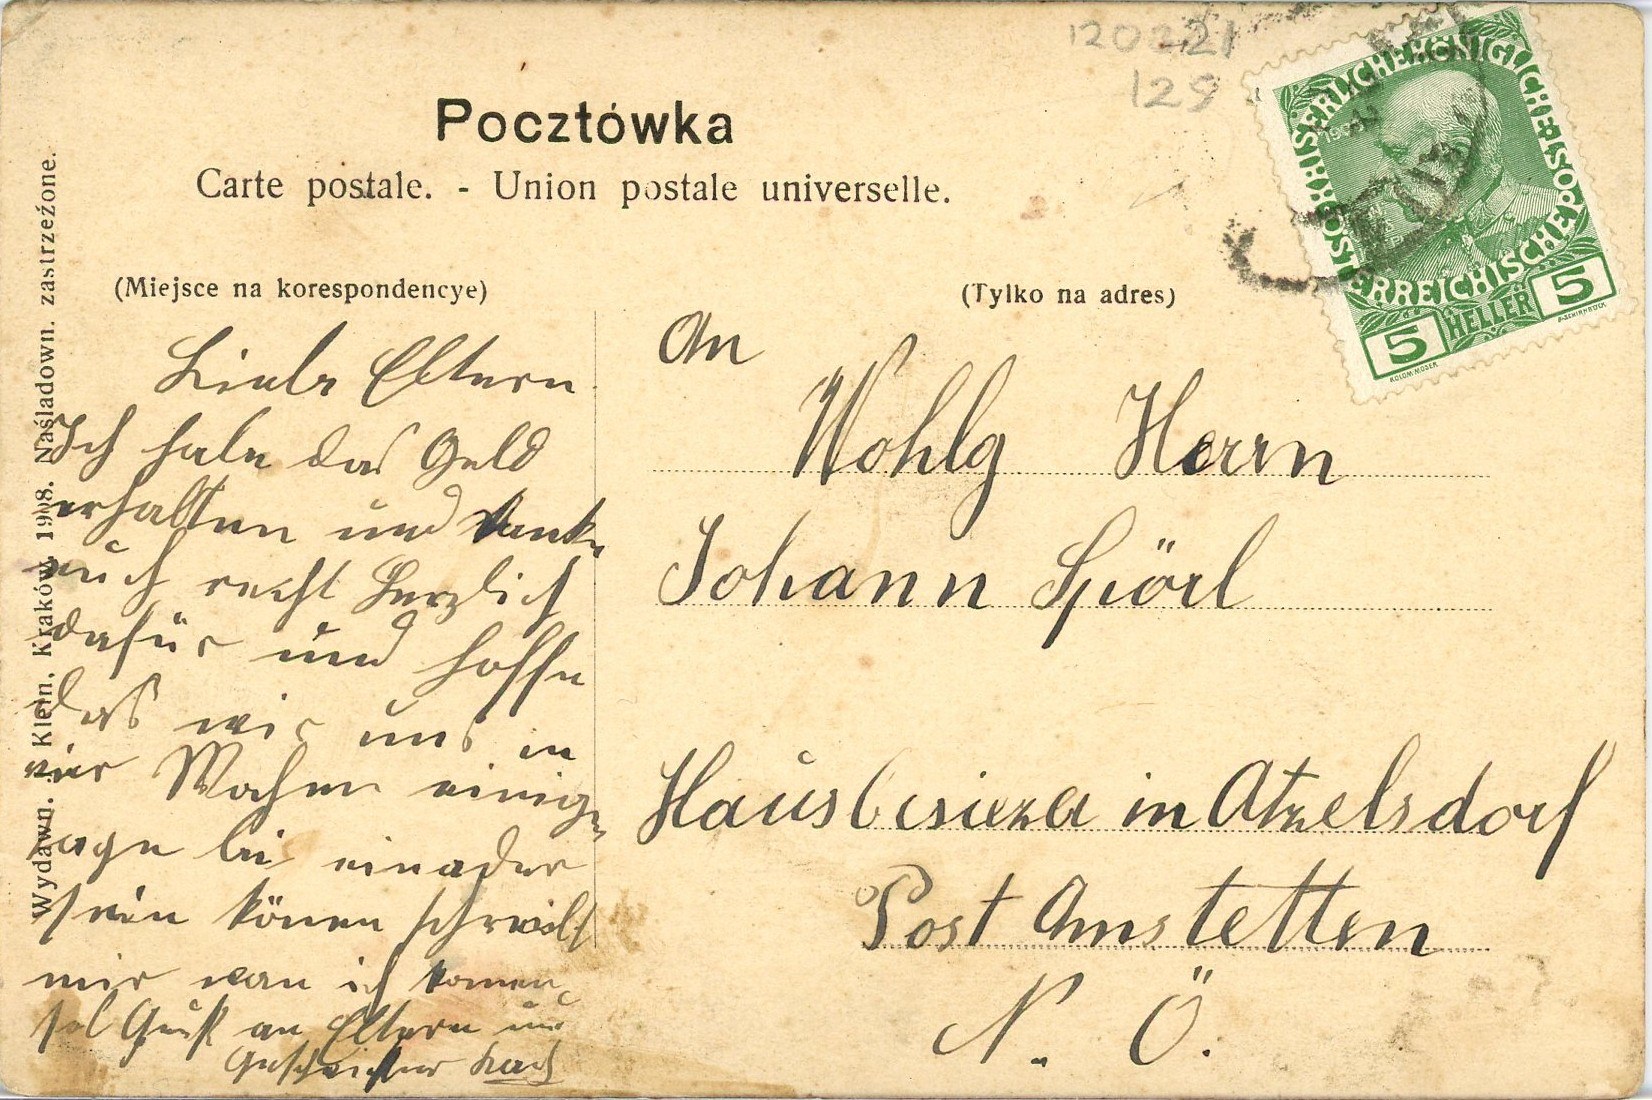 120221
129
Pocztówka
Carte postale. - Union postale universelle.
(Miejsce na korespondencye)
(Tylko na adres)
Wydawn. J. Klein, Kraków, 1908. Naśladown. zastrzeżone.
KAISERLICHE KÖNIGLICHE
ÖSTERREICHISCHE POST
1908
5 HELLER 5
KOLOM. MOSER
F. SCHIRNBÖCK
Liebe Eltern
Ich habe das Geld
erhalten und danke
euch recht herzlich
dafür und hoffe
daß wir uns in
vier Wochen einige
Tage bei einader
sein könen schreibt
mir wan ich komen
sol Gruß an Eltern und
Geschwister
An
Wohlg Herrn
Johann Spörl
Hausbesitzer in Atzelsdorf
Post Amstetten
N. Ö.